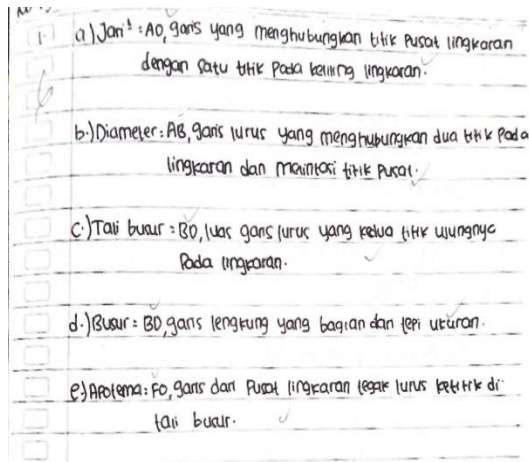 1. a) Jari²: AO, garis yang menghubungkan titik pusat lingkaran
dengan satu titik pada keliling lingkaran.
b.) Diameter: AB, garis lurus yang menghubungkan dua titik pada
lingkaran dan melintasi titik pusat.
c.) Tali busur: BD, luas garis lurus yang kedua titik ujungnya
pada lingkaran.
d.) Busur: BD, garis lengkung yang bagian dan tepi ukuran.
e) Apotema: FO, garis dari pusat lingkaran tegak lurus ke titik di
tali busur.